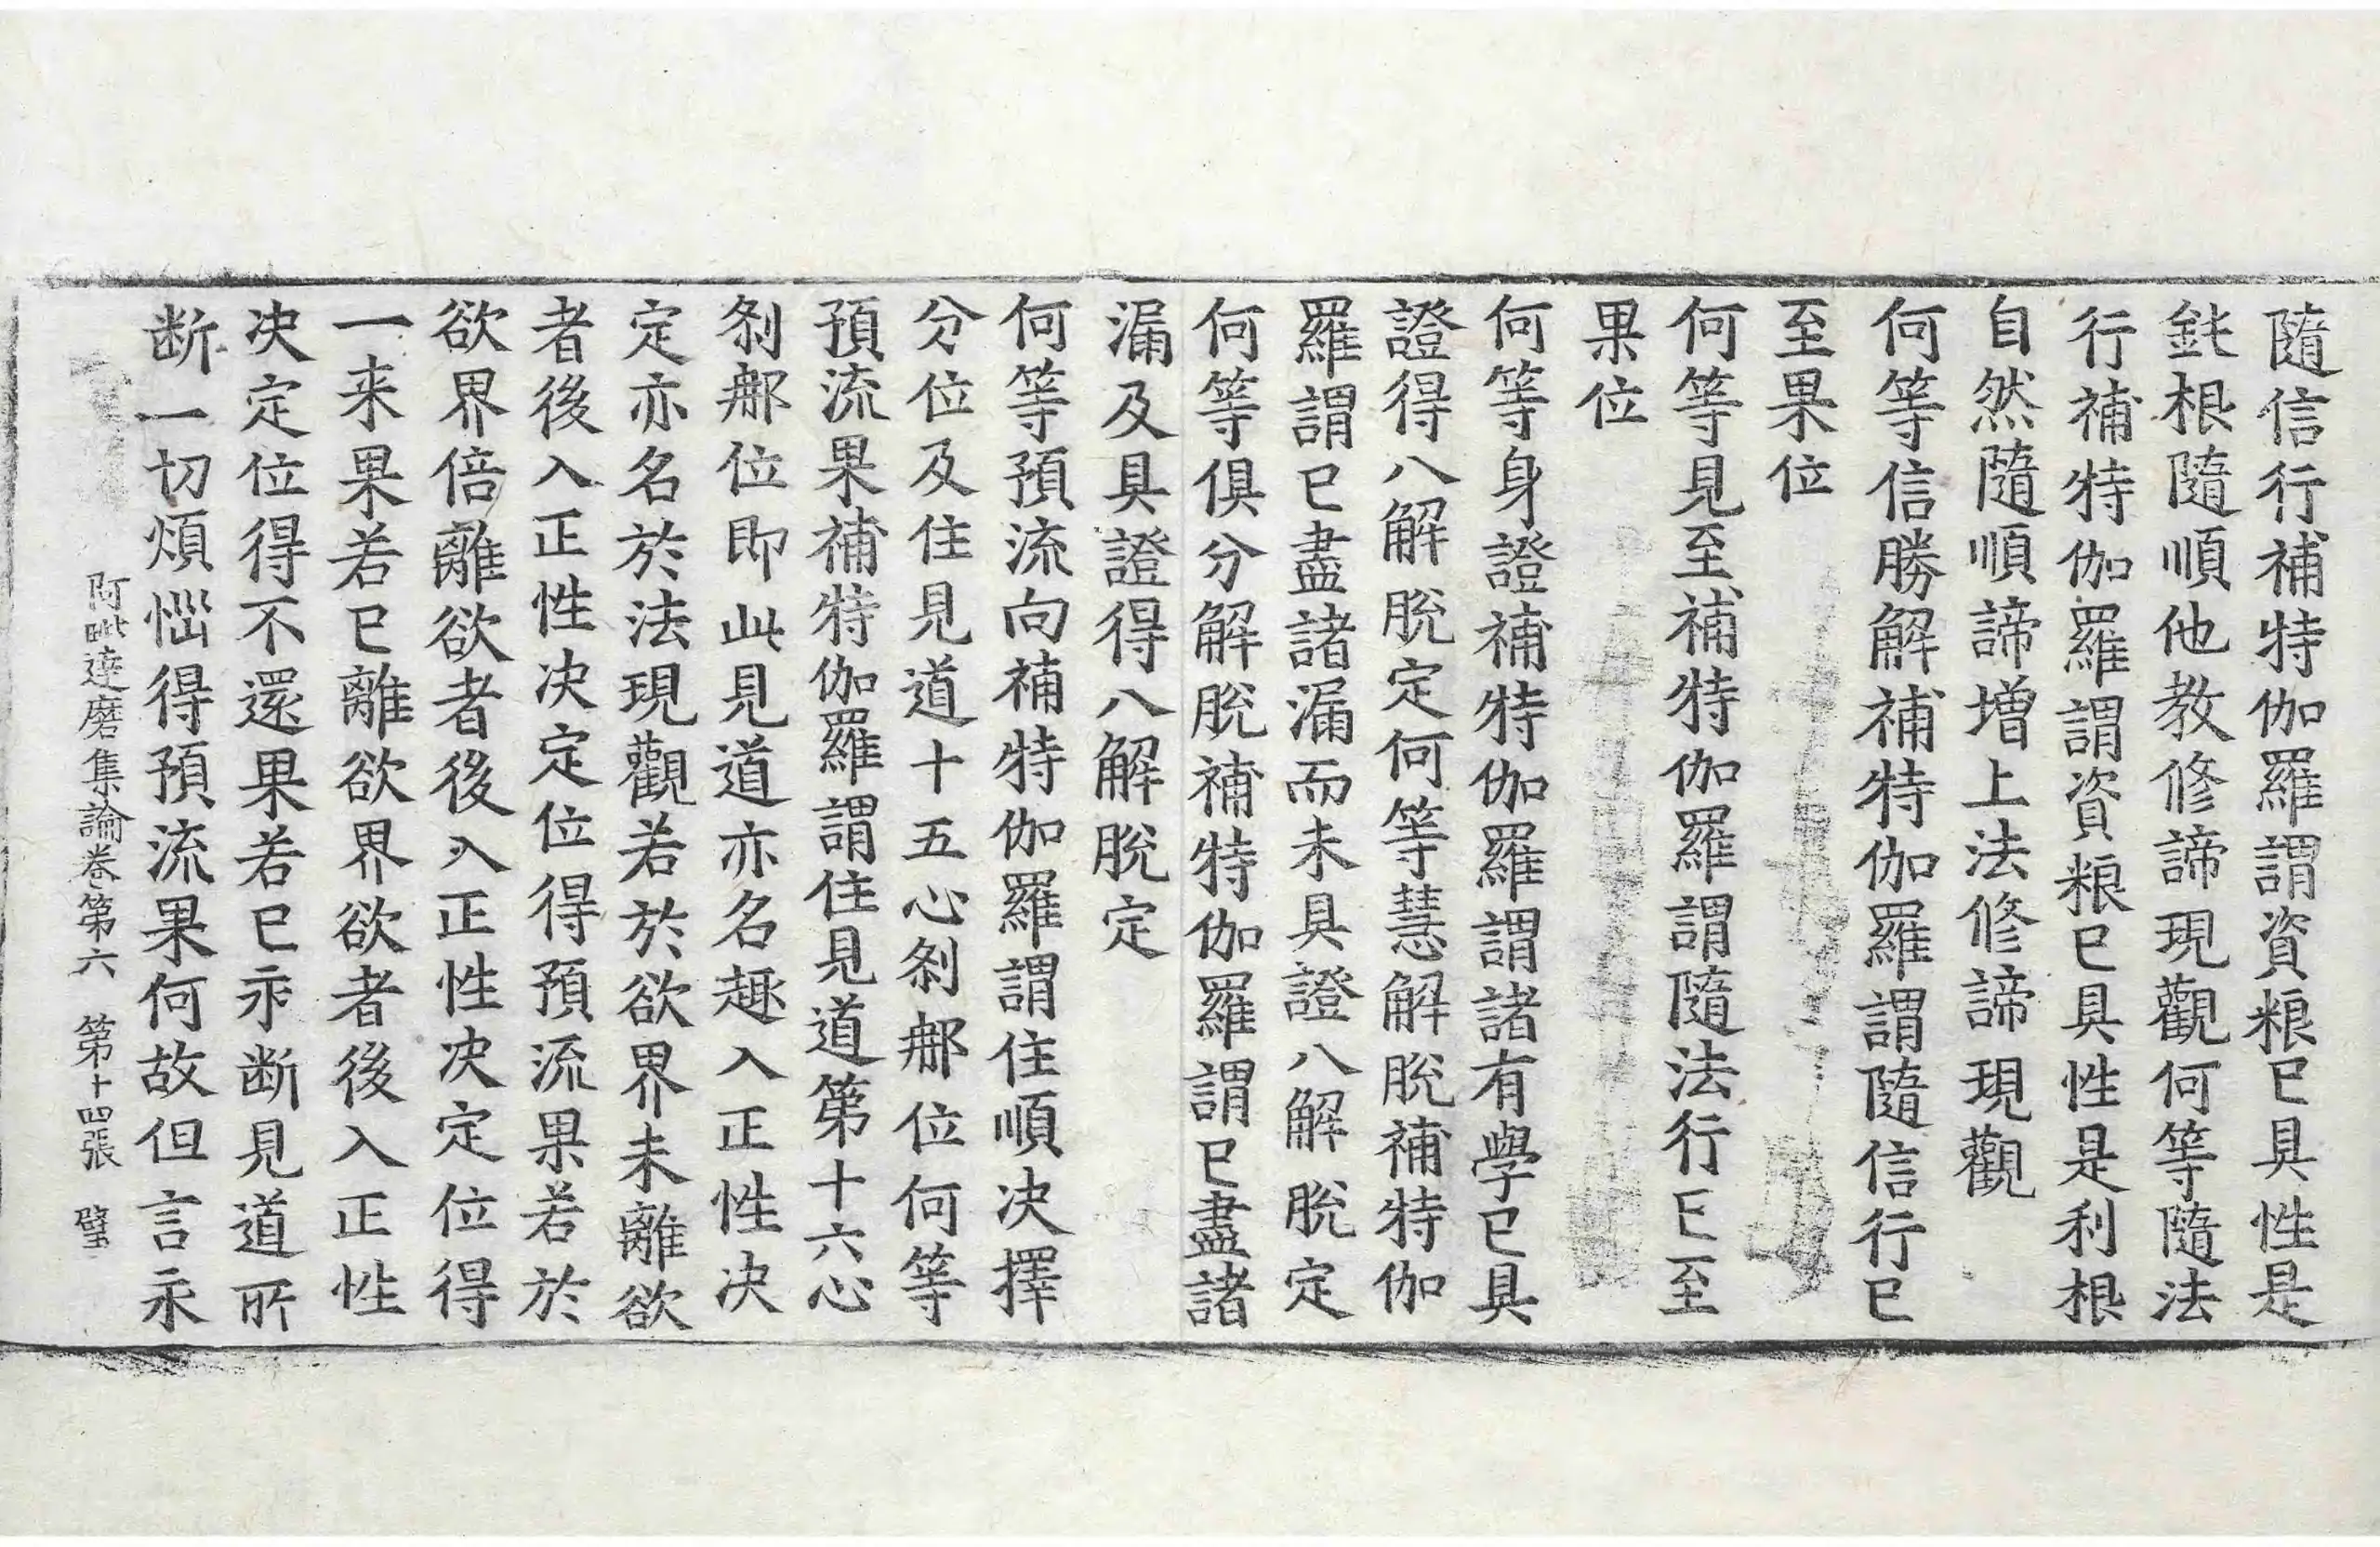 隨信行補特伽羅謂資粮已具性是
鈍根隨順他教修諦現觀何等隨法
行補特伽羅謂資粮已具性是利根
自然隨順諦增上法修諦現觀
何等信勝解補特伽羅謂隨信行已
至果位
何等見至補特伽羅謂隨法行已至
果位
何等身證補特伽羅謂諸有學已具
證得八解脫定何等慧解脫補特伽
羅謂已盡諸漏而未具證八解脫定
何等俱分解脫補特伽羅謂已盡諸
漏及具證得八解脫定
何等預流向補特伽羅謂住順决擇
分位及住見道十五心剎那位何等
預流果補特伽羅謂住見道第十六心
剎那位即此見道亦名趣入正性决
定亦名於法現觀若於欲界未離欲
者後入正性决定位得預流果若於
欲界倍離欲者後入正性决定位得
一来果若已離欲界欲者後入正性
决定位得不還果若已永断見道所
断一切煩惱得預流果何故但言永
阿毗達磨集論卷第六 第十四張 璧